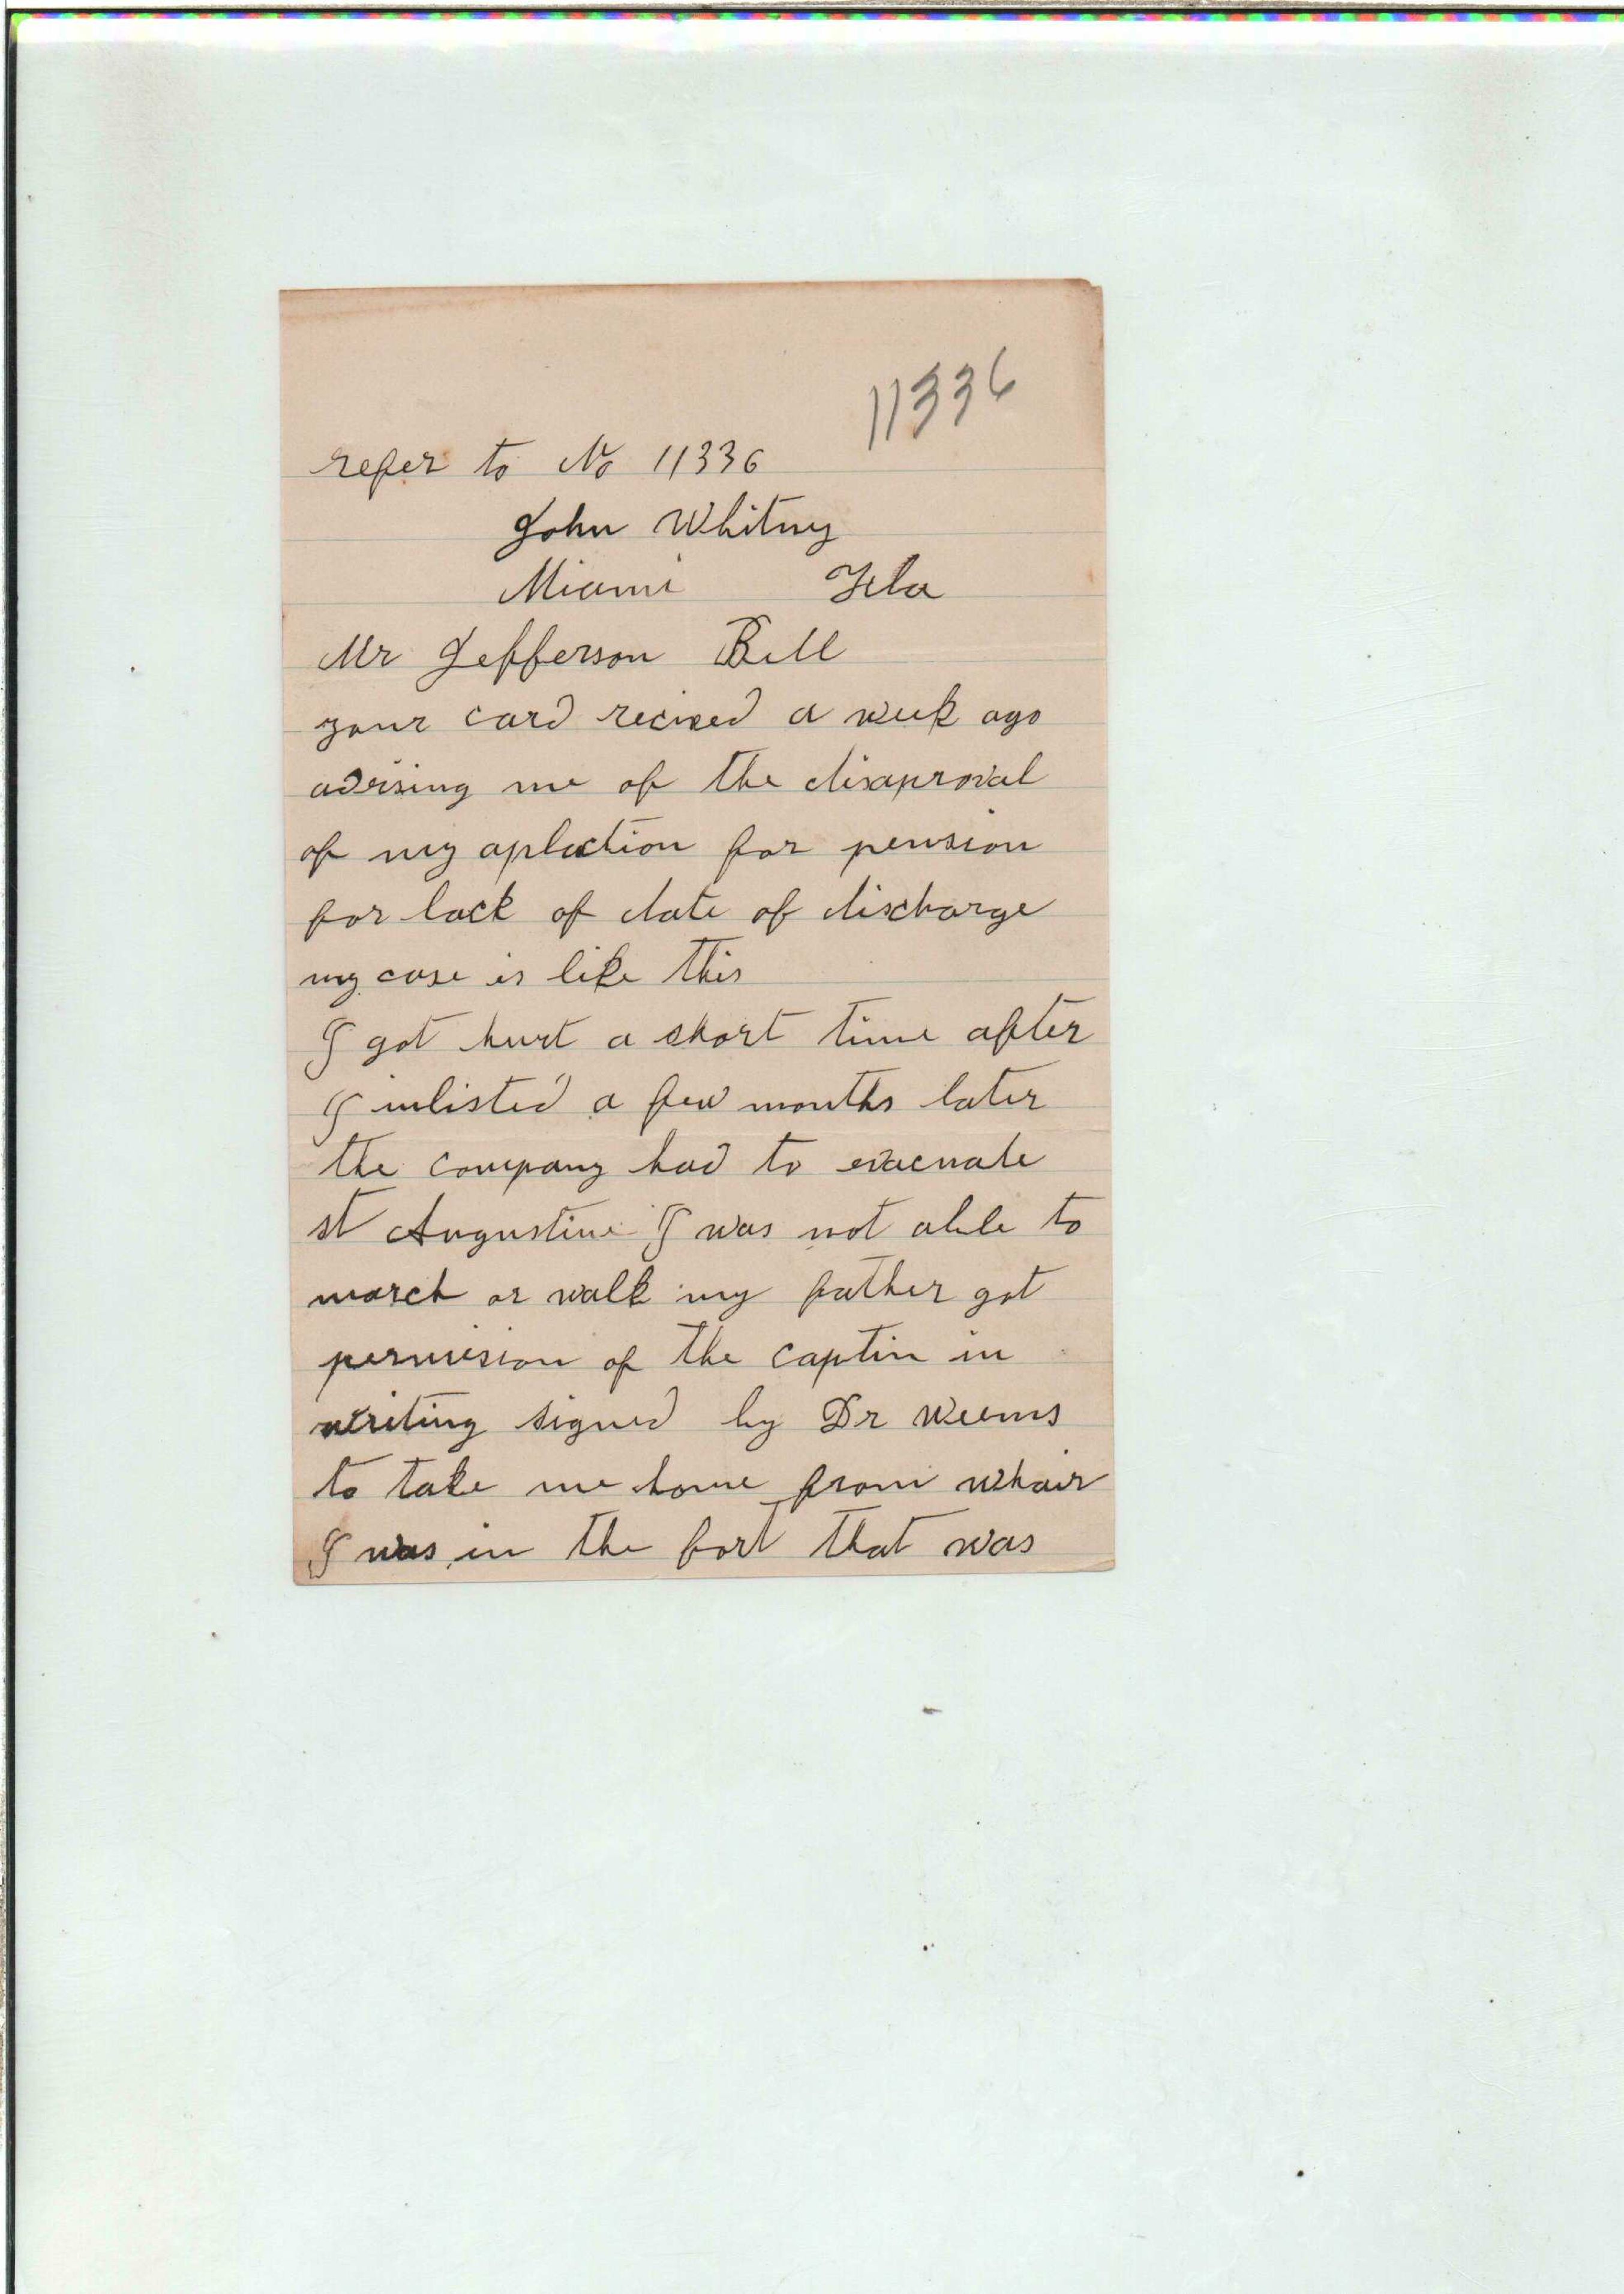 11336
refer to No 11336
John Whitny
Miami Fla
Mr Jefferson Bell
your card recived a week ago
advising me of the disaproval
of my aplection for pension
for lack of date of discharge
my case is like this
I got hurt a short time after
I inlisted a few months later
the company had to evacuate
st Augustine I was not able to
march or walk my father got
permision of the captin in
writing signed by Dr Weems
to take me home from whair
I was in the fort that was